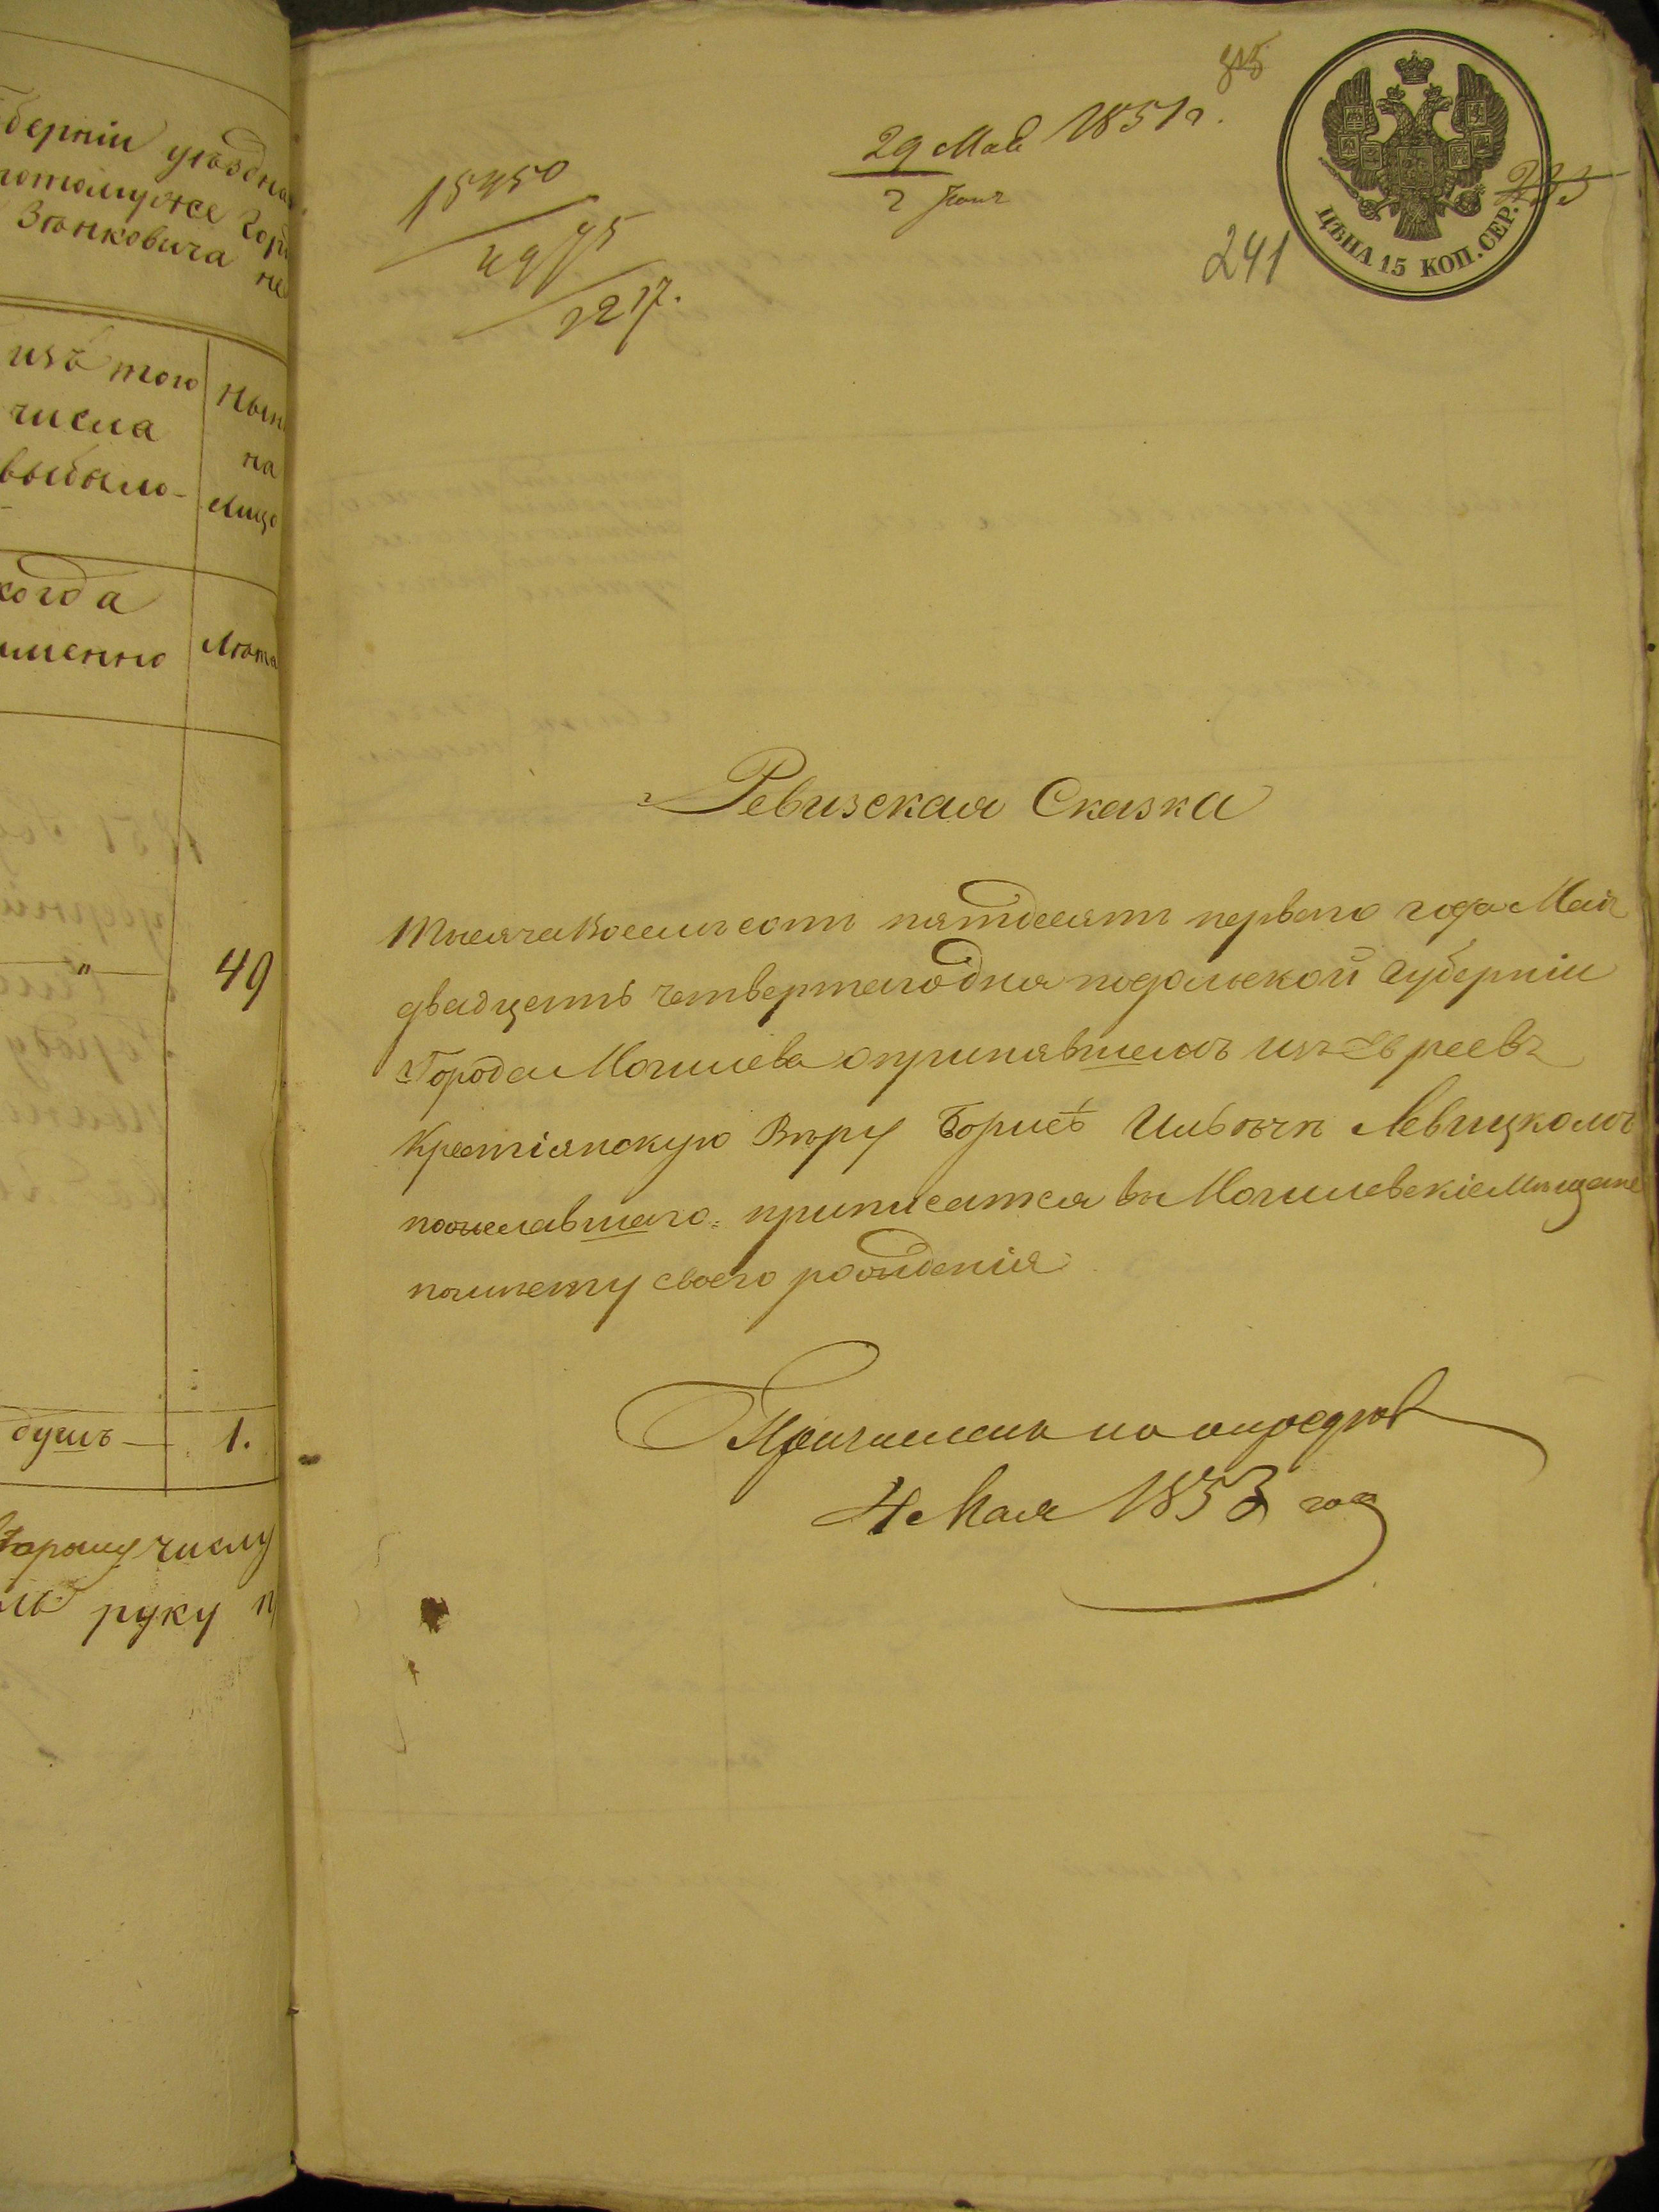 берніи уѣздна
потомужe гор
Зѣнковича не
изъ того
числа
выбыло
Нын
на
лицо
когда
именно
Лѣта
"
49
душъ
1.
числу
руку
315
29 Мая 1851 г.
2 Іюня
15450
4975
1217.
241
ЦѢНА 15 КОП. СЕР.
Ревизская Сказка
Тысяча Восемьсотъ пятдесятъ первого года Мая
двадцать четвертаго дня подольской губерніи
Города Могилева опринявшемъ изъ Евреевъ
Крестіянскую Вѣру Борисѣ Ильѣчѣ Левицкомъ
пожелавшаго приписатся въ Могилевскіе Мѣщане
помѣсту своего рожденія
4 Мая 1853 года